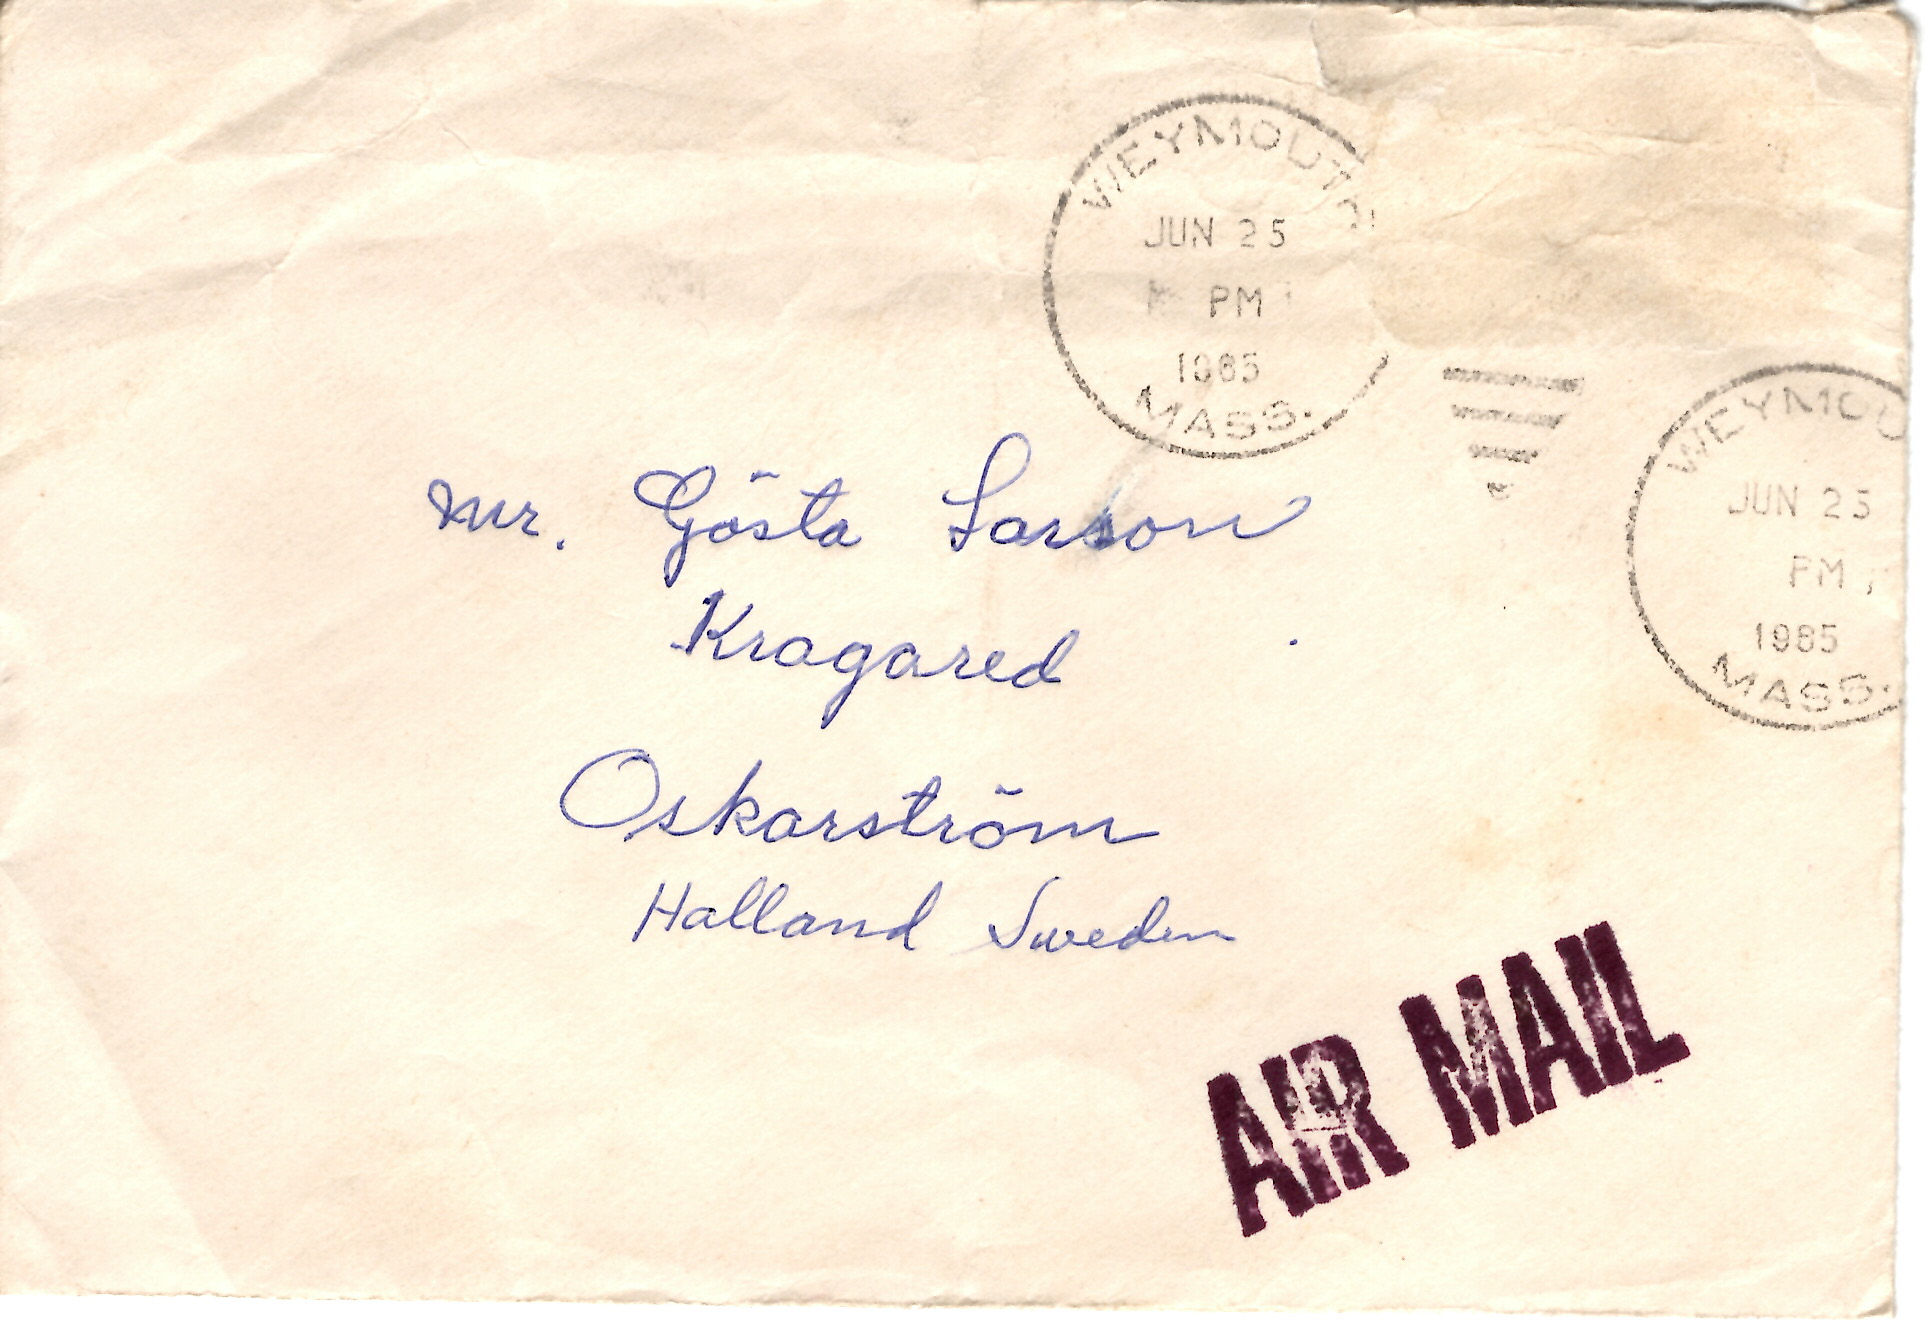 WEYMOUTH
JUN 25
PM
1985
MASS.
WEYMOU
JUN 25
PM
1985
MASS.
Mr. Gösta Larson
Kragared
Oskarström
Halland Sweden
AIR MAIL